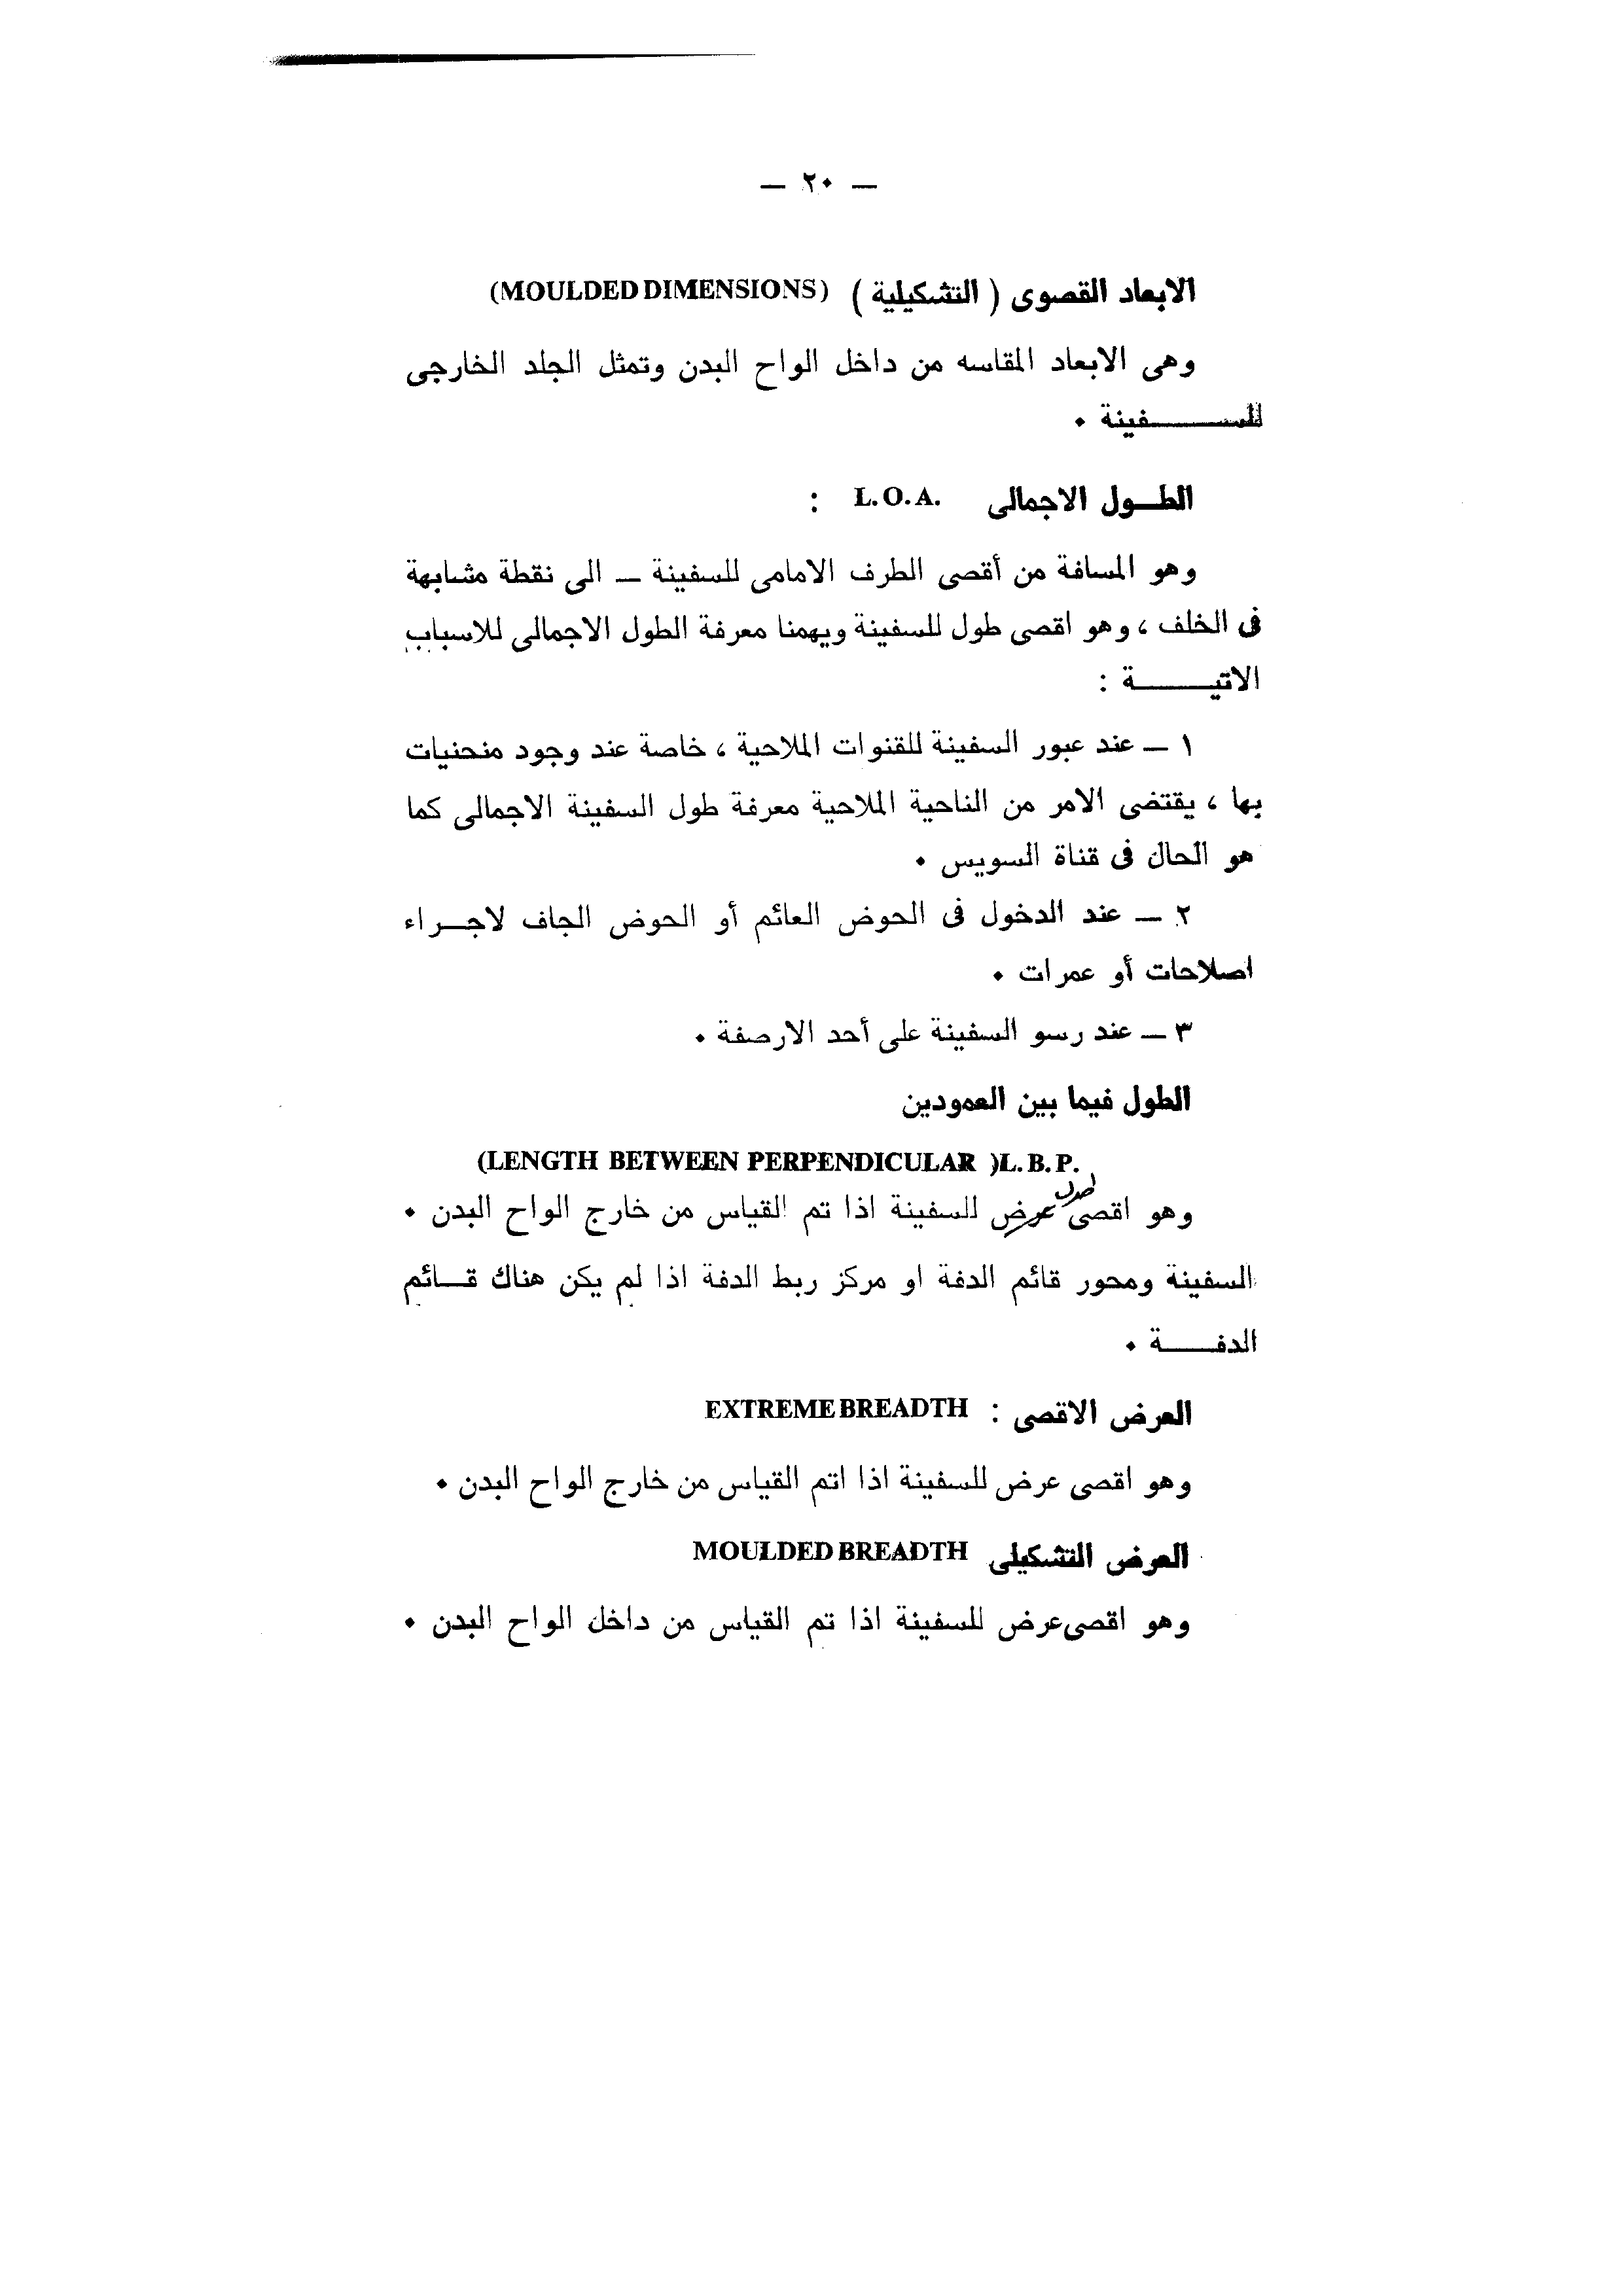 — ٢٠ —
الابعاد القصوى ( التشكيلية ) (MOULDED DIMENSIONS)
وهى الابعاد المقاسه من داخل الواح البدن وتمثل الجلد الخارجى
للسـفينة .
الطـول الاجمالى L.O.A. :
وهو المسافة من أقصى الطرف الامامى للسفينة ـ الى نقطة مشابهة
فى الخلف ، وهو اقصى طول للسفينة ويهمنا معرفة الطول الاجمالى للاسباب
الاتيـة :
١ ـ عند عبور السفينة للقنوات الملاحية ، خاصة عند وجود منحنيات
بها ، يقتضى الامر من الناحية الملاحية معرفة طول السفينة الاجمالى كما
هو الحال فى قناة السويس .
٢ ـ عند الدخول فى الحوض العائم أو الحوض الجاف لاجـراء
اصلاحات أو عمرات .
٣ ـ عند رسو السفينة على أحد الارصفة .
الطول فيما بين العمودين
(LENGTH BETWEEN PERPENDICULAR )L.B.P.
طول
وهو اقصى عرض للسفينة اذا تم القياس من خارج الواح البدن .
السفينة ومحور قائم الدفة او مركز ربط الدفة اذا لم يكن هناك قـائم
الدفـة .
العرض الاقصى : EXTREME BREADTH
وهو اقصى عرض للسفينة اذا اتم القياس من خارج الواح البدن .
العرض التشكيلى MOULDED BREADTH
وهو اقصى عرض للسفينة اذا تم القياس من داخل الواح البدن .